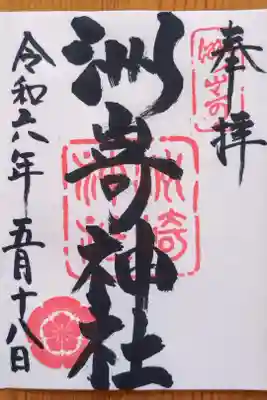 奉拝
洲嵜神社
洲崎神社
令和六年 五月十八日